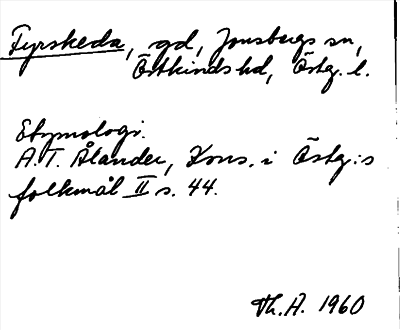 Fyrskeda, gd, Jonsbergs sn,
Östkinds hd, Östg. l.
Etymologi.
A.T. Ålander, Kons. i Östg:s
folkmål II s. 44.
Th.A. 1960